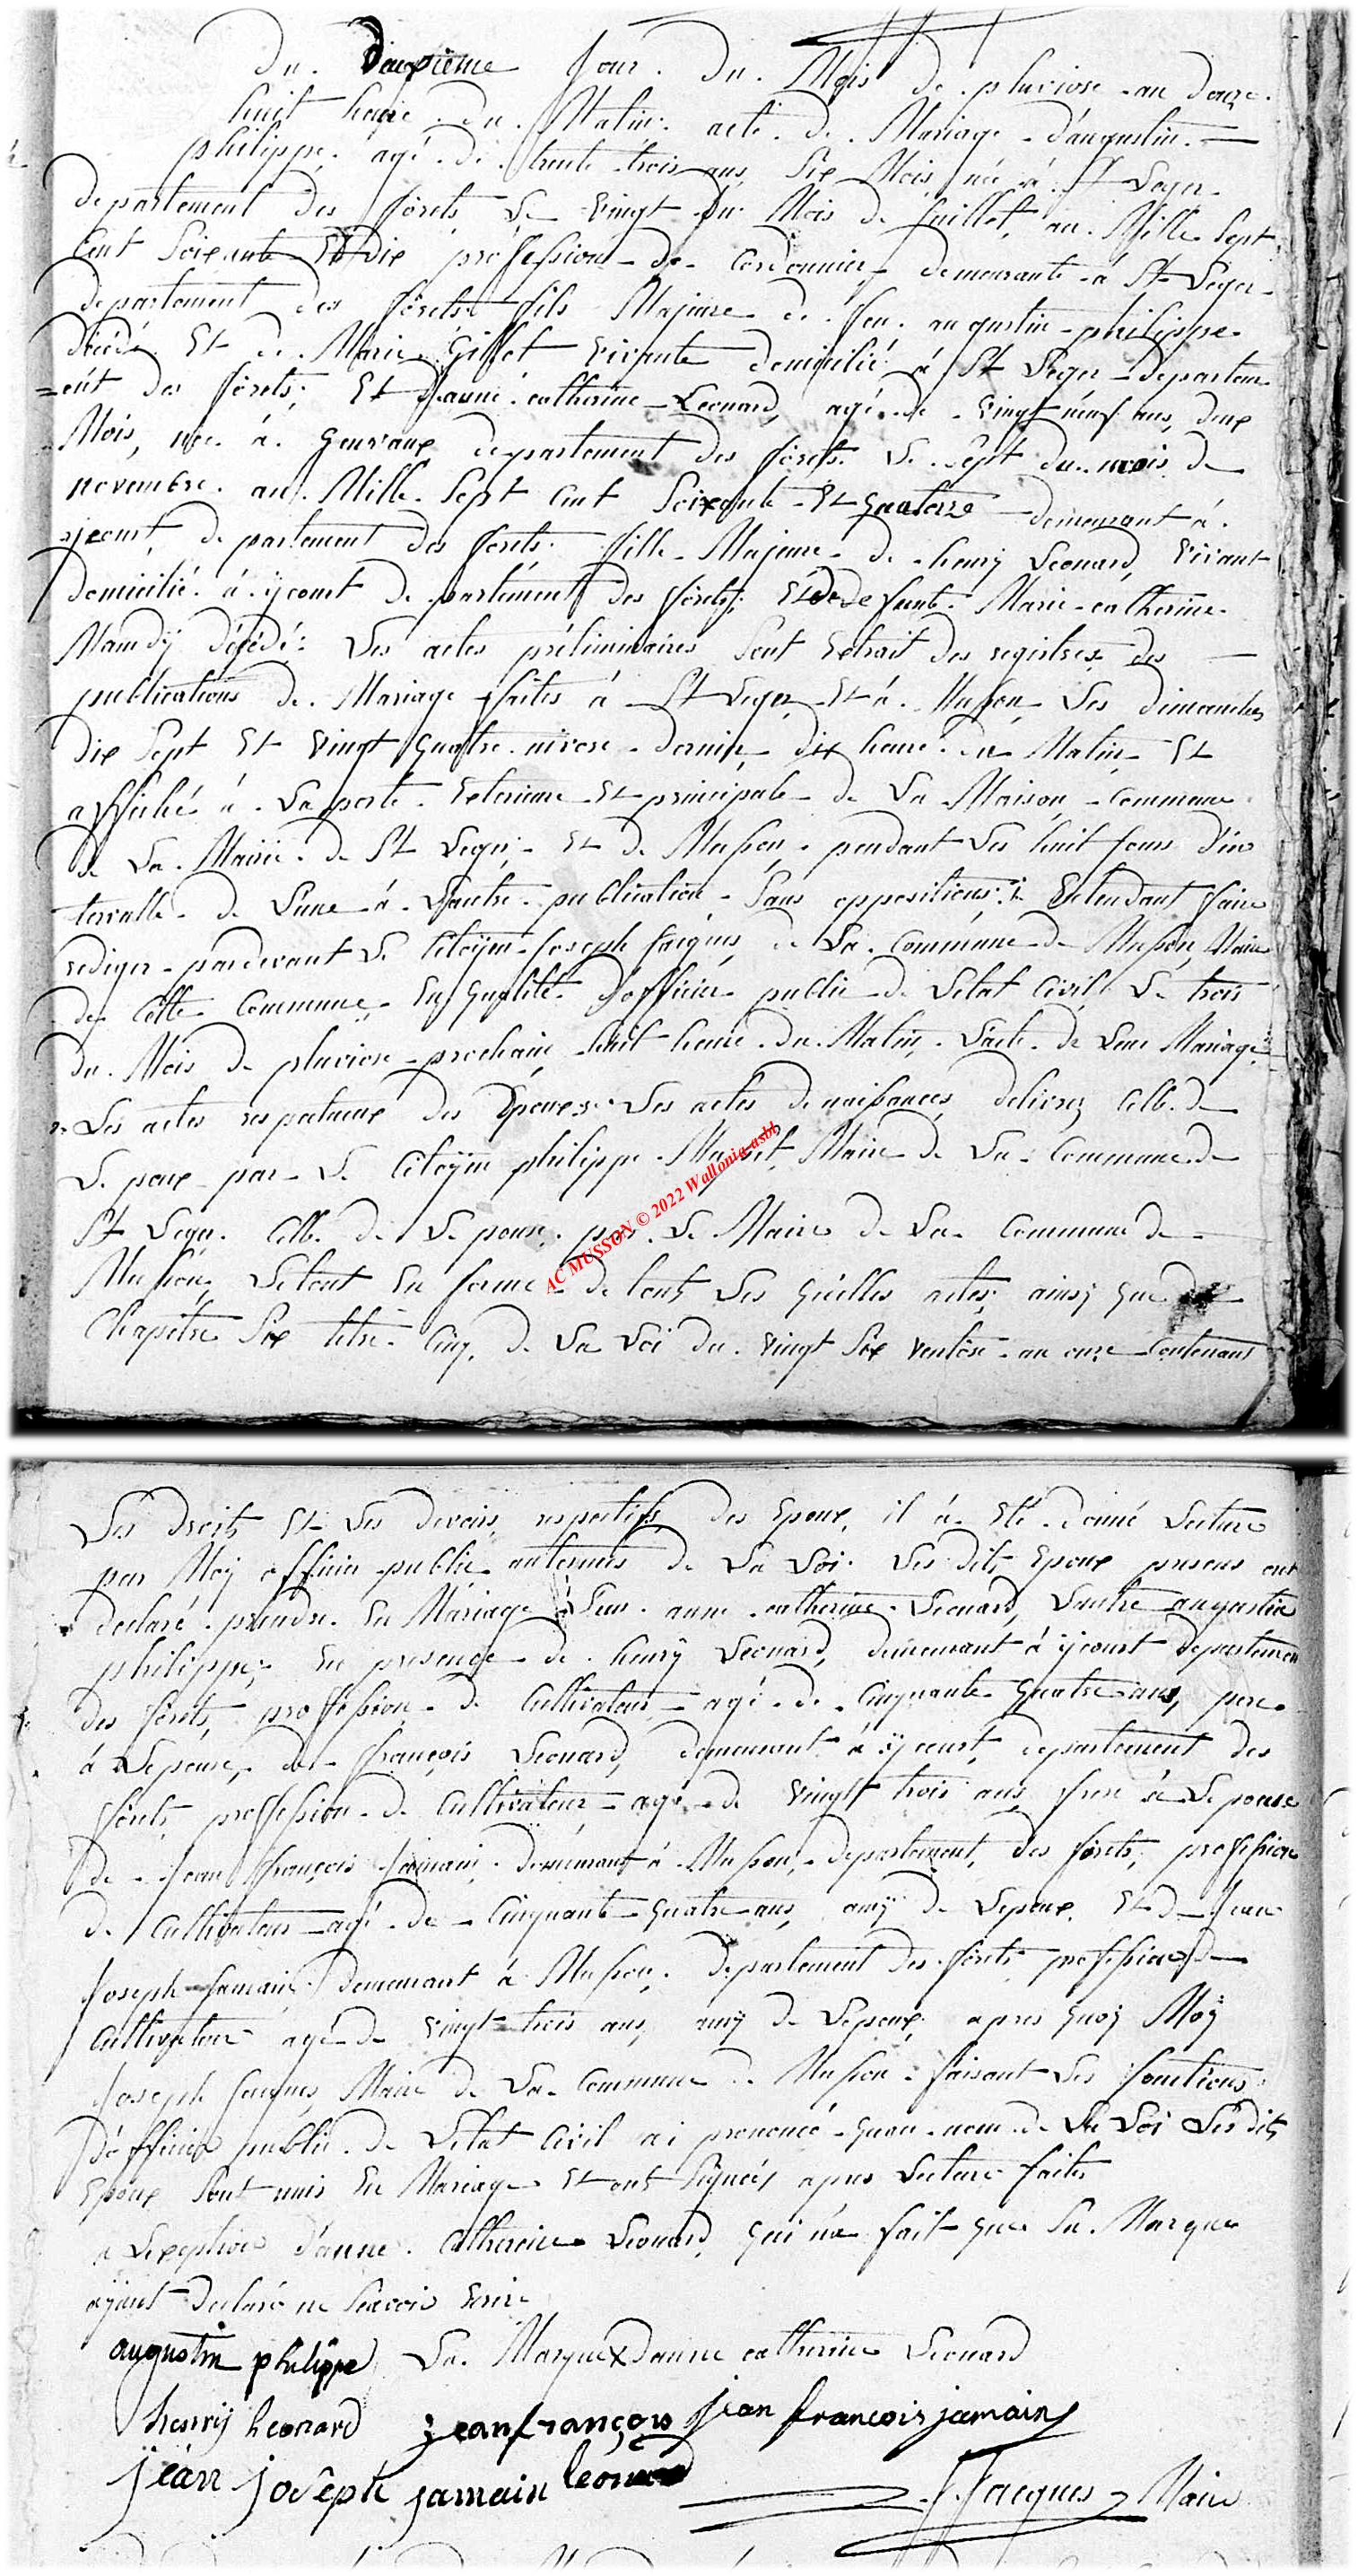 Du. Deuxieme Jour. Du. Mois de. pluviose. an douze.
huit heure. du. Matin. acte. de. Mariage. d'augustin.
philippe. agé. de. trente trois ans, Six Mois, né. à. St Leger.
departement des forêts, Le vingt du Mois de Juillet, an. Mille Sept
Cent Soixante Et dix profession de Cordonnier demeurante à St Leger
departement des forêts fils Majeure de feu. augustin philippe
décédé. Et de Marie. Gillet vivante domicilié à St Leger departem
=ent des forêts; Et Jeanne. catherine Leonard, agée de vingt neuf ans, deux
Mois, née à. Gouvaux departement des forêts. Le. sept du mois de
novembre. an. Mille. Sept Cent Soixante Et Quatorze demeurant à.
yjcourt, departement des forêts. fille Majeure de henrij Leonard, vivant
domicilié. à. ijcourt departement des forêts; Et de defunte. Marie. catherine.
Mandÿ décédé: Les actes préliminaires Sont Extrait des registres des
publications de. Mariage faites à St Leger Et à. Musson Les dimanches
dix Sept Et vingt Quatre. nivose dernier, dix heure. du Matin, Et
affiché à. La porte. Exterieure Et principale de La Maison Commune
de La. Mairie. de St Leger Et de Musson. pendant Les huit Jours d'in
tervalle. de L'une à. L'autre. publication. Sans oppositions: Entendant faire
rediger pardevant Le Citoÿen Joseph Jacques, de La. Commune de Musson, Maire
de Cette Commune, En Qualité d'officier public de L'etat Civil Le trois
du. Mois de pluviose prochain huit heure. du. Matin, L'acte. de Leur Mariage
Les actes respectueux des Epoux. Les actes de naissances, delivrez Celle. de
L'epoux par Le Citoÿen philippe Maire de La Commune de
AC MUSSON © 2022 Wallonia asbl
St Leger. Celle. de L'epouse. par. Le Maire de La. Commune de
Musson, Le tout En forme de tout Les Quelles actes, ainsij Que de
Chapitre Six titre. Cinq. de La Loi du. vingt Six ventôse an onze Contenant
Les droits Et Les devoirs respectifs des Epoux, il à Eté. donné Lecture
par Moij officier public auxtermes de La Loi. Les dits Epoux presens ont
declaré. prendre. En Mariage L'un. anne. catherine. Leonard, L'autre augustin
philippe; En presence de. henrÿ Leonard, demeurant à ijcourt departement
des forêts, profession. de Cultivateur agé. de. Cinquante Quatre ans, pere
à L'epouse, de françois Leonard, demeurant à ijcourt, departement des
forêts, profession. de Cultivateur agé de vingt trois ans frere à L'epouse
de. Jean françois Jamain. demeurant à Musson, departement, des forêts, profession
de Cultivateur agé de Cinquante Quatre ans, amÿ de L'epoux. Et de Jean
Joseph Jamain demeurant à Musson. departement des forêts profession de
Cultivateur agé de vingt trois ans, amij de L'epoux, apres Quoij Moij
Joseph Jacques, Maire de La. Commune de Musson. faisant Les fonctions
D'officier public. de L'etat Civil ai prononcé Quau. nom. de La Loi Lesdits
Epoux Sont unis En Mariage Et ont Signéez apres Lecture faite
a L'exeption d'anne. Catherine Leonard, Qui n'a fait Que Sa. Marque
ayant declaré ne Scavoir Ecrire
augustin philippe La. Marque X danne catherine Leonard
henrij leonard jean françois jean francois jamain
jean joseph jamain leonard J. Jacques Maire